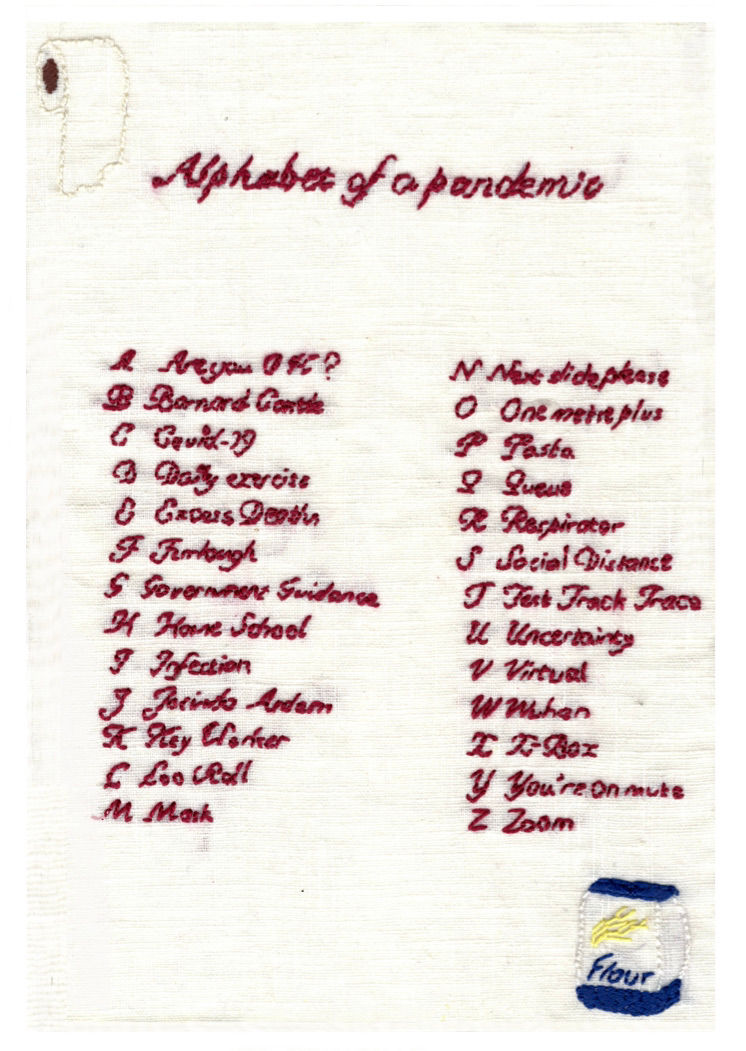 Alphabet of a pandemic
A Are you OK?
B Barnard Castle
C Covid-19
D Daily exercise
E Excess Deaths
F Furlough
G Government Guidance
H Home School
I Infection
J Jacinda Ardern
K Key Worker
L Loo Roll
M Mask
N Next slide please
O One metre plus
P Pasta
Q Queue
R Respirator
S Social Distance
T Test Track Trace
U Uncertainty
V Virtual
W Wuhan
X X-Box
Y You're on mute
Z Zoom
Flour